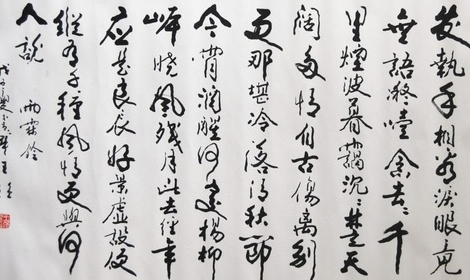 發執手相看淚眼竟
無語凝噎念去〻千
里煙波暮靄沉〻楚天
闊多情自古傷離別
更那堪冷落清秋節
今宵酒醒何處楊柳
岸曉風殘月此去經年
應是良辰好景虛設便
縱有千種風情更與何
人說 雨霖鈴
戊子